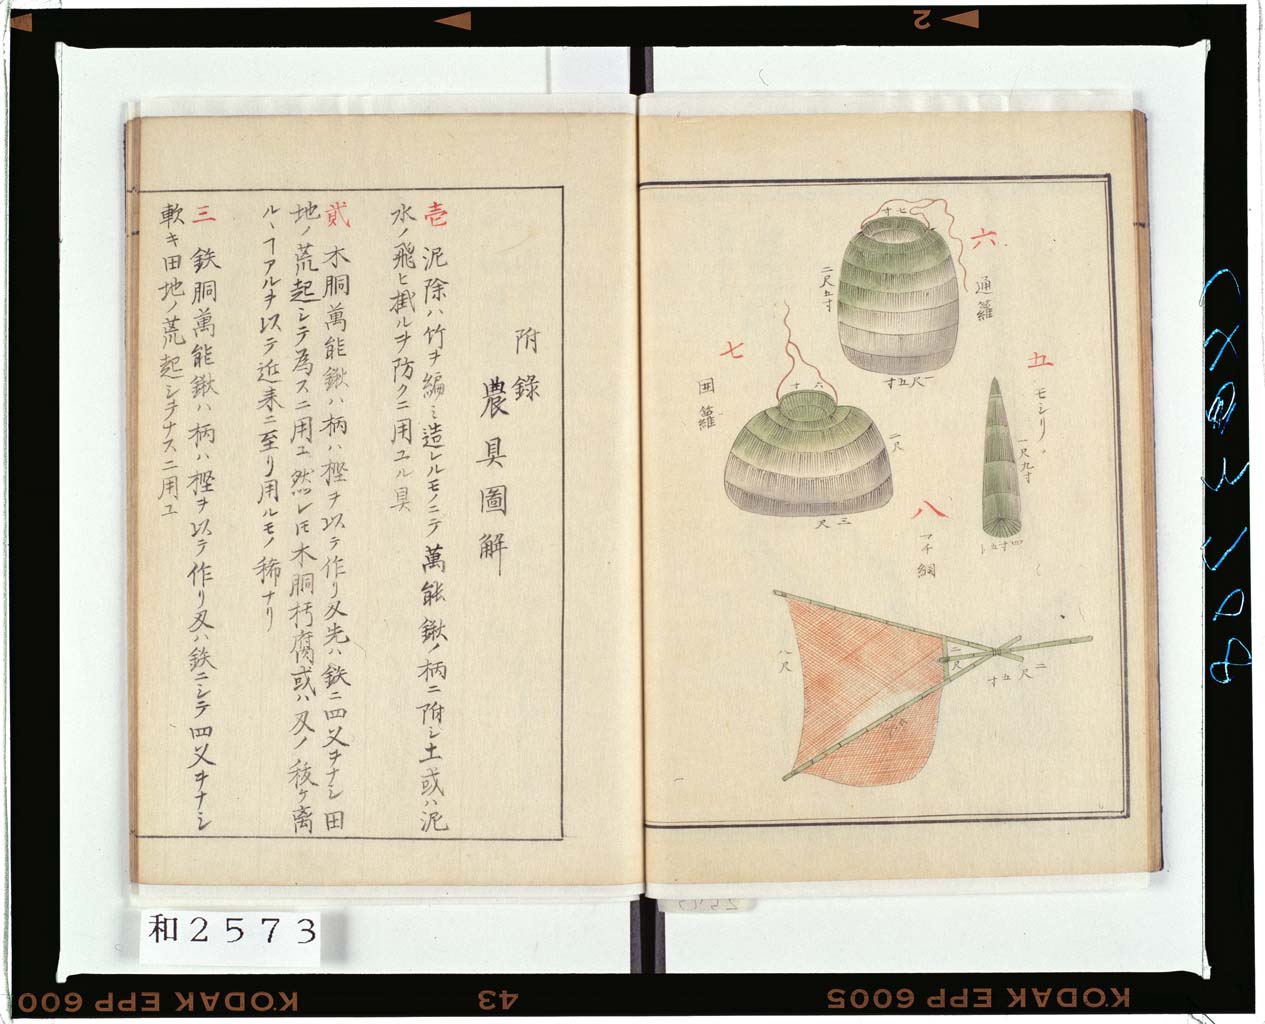 六
通籮
七寸
二尺五寸
一尺五寸
五
モジリ
一尺九寸
四寸五卜
七
囲籮
六寸
二尺
三尺
八
マチ網
八尺
二尺
二尺五寸
附錄
農具圖解
壱 泥除ハ竹ヲ編ミ造レルモノニテ萬能鍬ノ柄ニ附シ土或ハ泥
水ノ飛ヒ掛ルヲ防クニ用ユル具
貳 木胴萬能鍬ハ柄ハ樫ヲ以テ作リ刄先ハ鉄ニ四叉ヲナシ田
地ノ荒起シテ為スニ用ユ然レ𪜈木胴朽腐或ハ刄ノ
ケ离
ルヽヿアルヲ以テ近来ニ至リ用ルモノ稀ナリ
三 鉄胴萬能鍬ハ柄ハ樫ヲ以テ作リ刄ハ鉄ニシテ四叉ヲナシ
軟キ田地ノ荒起シヲナスニ用ユ
和2573
KODAK EPP 6005
43
KODAK EPP 600
2